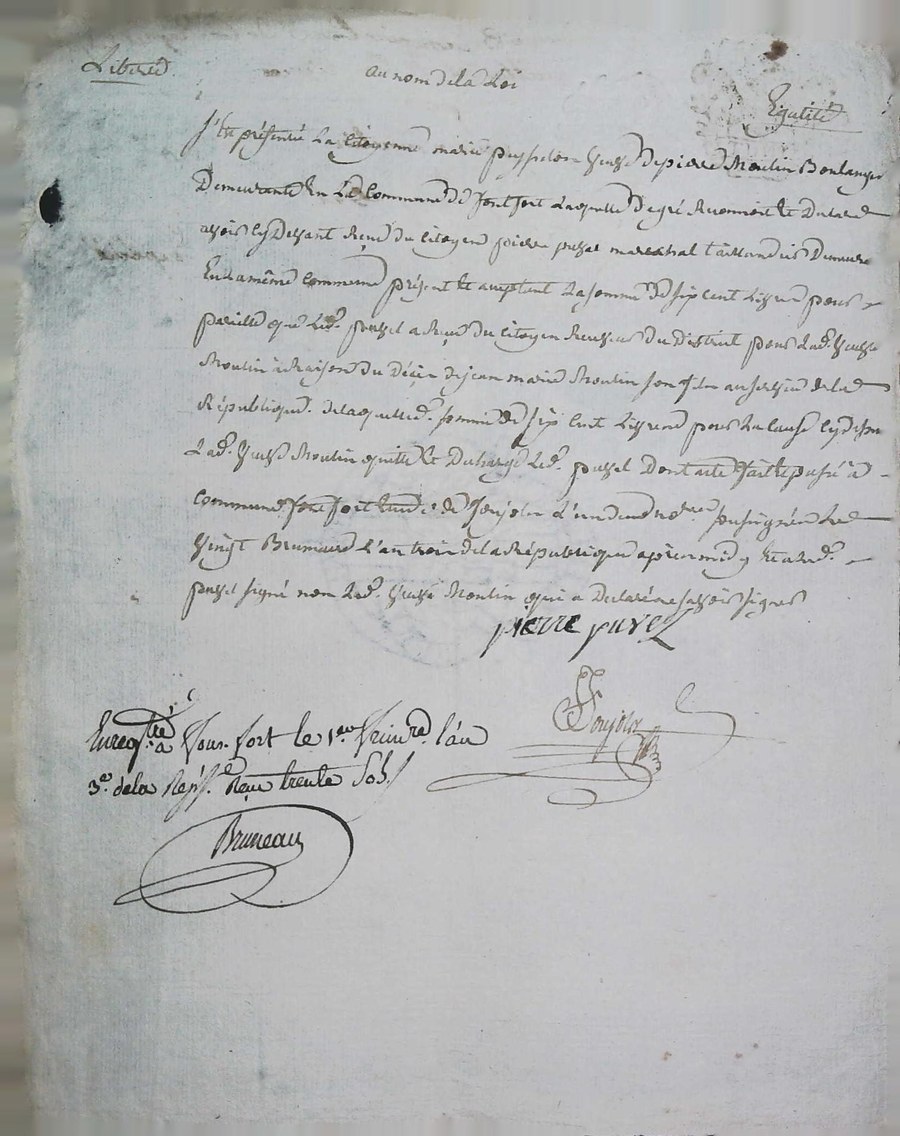 Liberté
au nom de la Loi
Egalité
s'est présentée La Citoyenne marie veuve de pierre Moulin Boulanger
Demeurante En La Commune De fontfort Laquelle de gré Reconnoit et Declare
avoir cy devant Reçu du Citoyen pierre puvel marechal taillandier Demeurant
En la même Commune présent et acceptant La somme De six cent Livres pour
pareille que Led. puvel a Reçu du Citoyen Receveur Du District pour Lad. veuve
Moulin à Raison Du Décès de jean marie Moulin son fils au service de la
République. de laquelle d. somme De six Cent Livres pour La cause cy dessus
Lad. veuve Moulin quitte et Decharge Led. puvel Dont acte fait et passé à
commune fontfort Etude de Ponjolon L'un des notres soussignés Le
vingt Brumaire L'an trois de la République après midy et a Led.
puvel signé non Lad. veuve Moulin qui a Declaré ne savoir signer
pierre puvel
Enregtré à Fons-fort le 1er frimre. l'an
3e. de la Rep. Reçu trente Sols
Bruneau